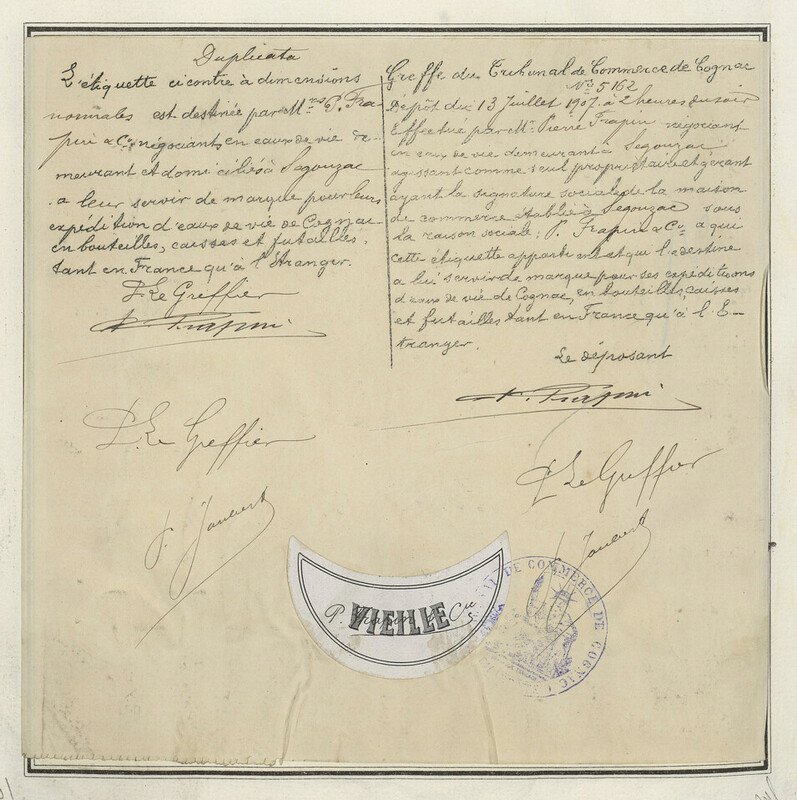 Duplicata
L'étiquette ci contre à dimensions
normales est destinée par Mrs P. Fra-
pin & Cie négociants en eaux de vie de-
meurant et domiciliés à Segonzac
a leur servir de marque pour leurs
expédition d'eaux de vie de Cognac
en bouteilles, caisses et futailles,
tant en France qu'à l'Etranger.
P. Le Greffier
P. Frapin
P. Le Greffier
J. Joubert
Greffe du Tribunal de Commerce de Cognac
No 5162
Dépôt du 13 Juillet 1907. à 2 heures du soir
Effectué par Mr Pierre Frapin négociant
en eaux de vie demeurant à Segonzac
agissant comme seul propriétaire et gérant
ayant la signature sociale de la maison
de commerce établie à Segonzac sous
la raison sociale: P. Frapin & Co. a qui
cette étiquette appartient et qui l. destine
a lui servir de marque pour ses expéditions
d'eaux de vie de Cognac, en bouteilles, caisses
et futailles tant en France qu'à l. E-
tranger.
Le déposant
P. Frapin
P. Le Greffier
Joubert
VIEILLE
P. Frapin & Cie
DE COMMERCE DE COGNAC